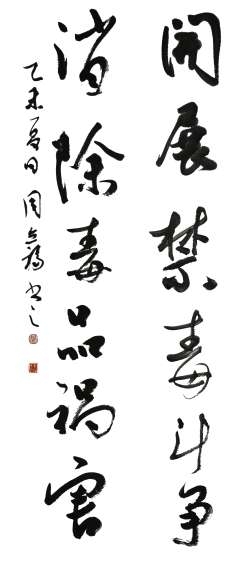 開展禁毒斗争
消除毒品祸害
乙未夏日周
书之